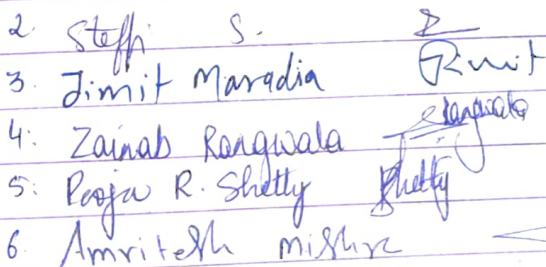 2. Steffi S.
3. Jimit Maradia
4. Zainab Rangwala Rangwala
5. Pooja R. Shetty Shetty
6. Amritesh Mishra